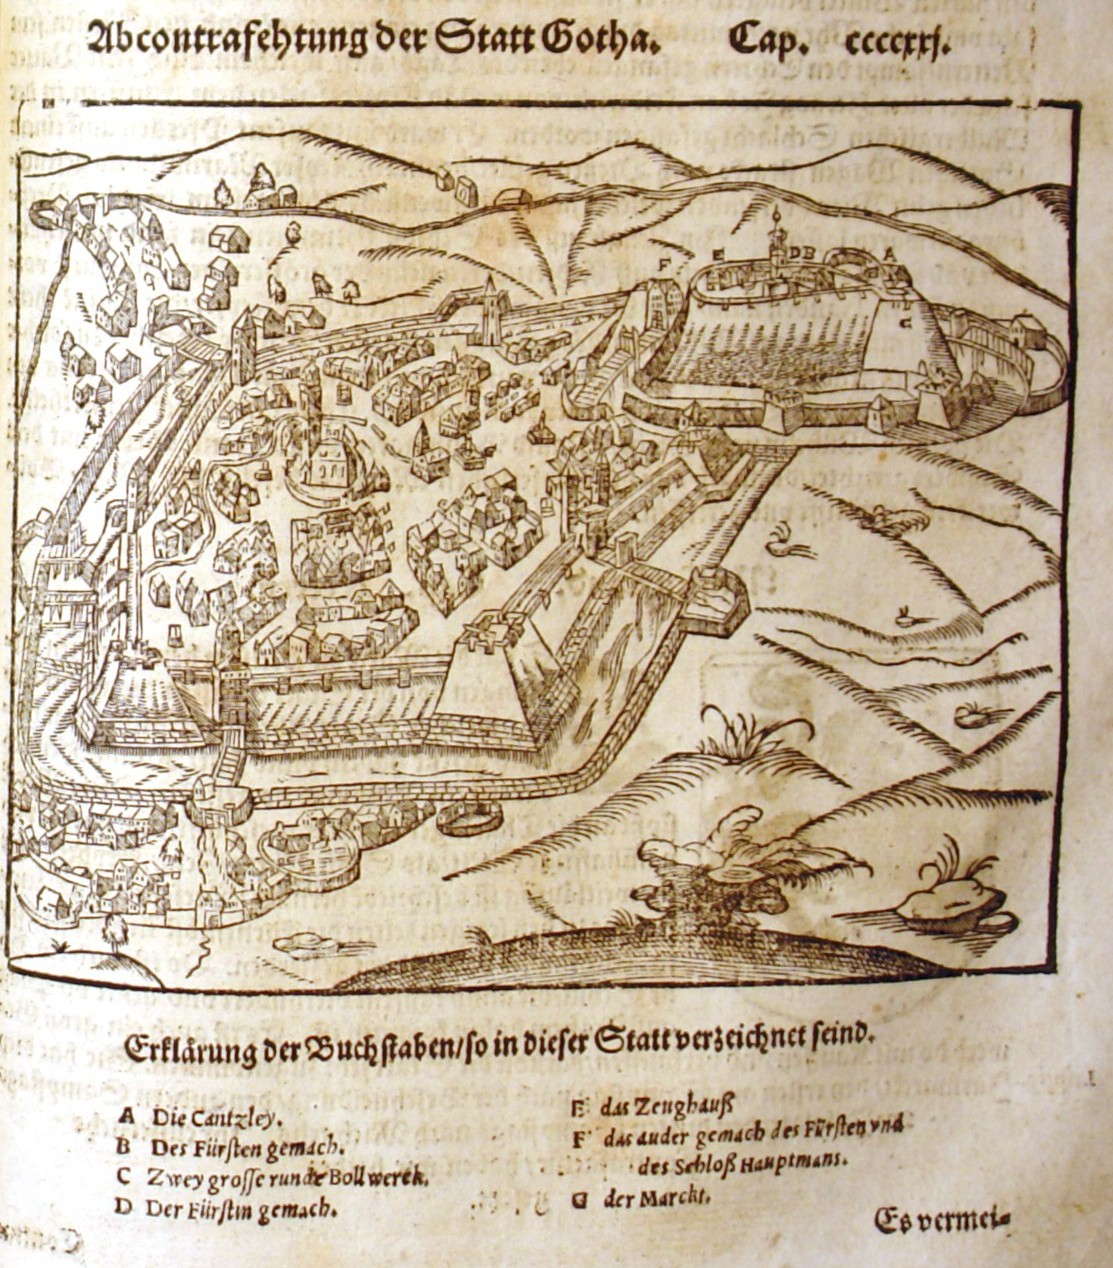 Abcontrafehtung der Statt Gotha. Cap. ccccxxj.
F E D B A
C
Erklårung der Buchstaben/so in dieser Statt verzeichnet seind.
A Die Cantzley.
B Des Fürsten gemach.
C Zwey grosse runde Bollwerck.
D Der Fürstin gemach.
E das Zeughauß
F das ander gemach des Fürsten vnd
des Schloß Hauptmans.
G der Marckt.
Es vermei-